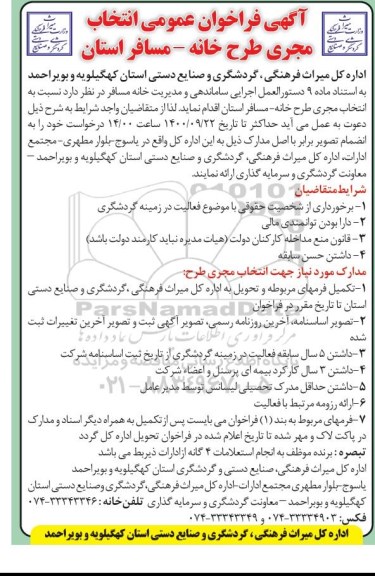 آگهی فراخوان عمومی انتخاب
مجری طرح خانه - مسافر استان
اداره کل میراث فرهنگی ، گردشگری و صنایع دستی استان کهگیلویه و بویراحمد
به استناد ماده ۹ دستورالعمل اجرایی ساماندهی و مدیریت خانه مسافر در نظر دارد نسبت به
انتخاب مجری طرح خانه-مسافر استان اقدام نماید. لذا از متقاضیان واجد شرایط به شرح ذیل
دعوت به عمل می آید حداکثر تا تاریخ ۱۴۰۰/۰۹/۲۲ ساعت ۱۴/۰۰ درخواست خود را به
انضمام تصویر برابر با اصل مدارک ذیل به این اداره کل واقع در یاسوج-بلوار مطهری- مجتمع
ادارات، اداره کل میراث فرهنگی، گردشگری و صنایع دستی استان کهگیلویه و بویراحمد -
معاونت گردشگری و سرمایه گذاری ارائه نمایند.
شرایط متقاضیان
۱- برخورداری از شخصیت حقوقی با موضوع فعالیت در زمینه گردشگری
۲- دارا بودن توانمندی مالی
۳- قانون منع مداخله کارکنان دولت (هیات مدیره نباید کارمند دولت باشد)
۴- داشتن حسن سابقه
مدارک مورد نیاز جهت انتخاب مجری طرح:
۱-تکمیل فرمهای مربوطه و تحویل به اداره کل میراث فرهنگی ،گردشگری و صنایع دستی
استان تا تاریخ مقرر در فراخوان
۲-تصویر اساسنامه، آخرین روزنامه رسمی، تصویر آگهی ثبت و تصویر آخرین تغییرات ثبت
شده
۳-داشتن ۵ سال سابقه فعالیت در زمینه گردشگری از تاریخ ثبت اساسنامه شرکت
۴-داشتن ۳ سال کارکرد بیمه ای پرسنل و اعضاء شرکت
۵-داشتن حداقل مدرک تحصیلی لیسانس توسط مدیر عامل
۶-ارائه رزومه مرتبط با فعالیت
۷-فرمهای مربوط به بند (۱) فراخوان می بایست پس از تکمیل به همراه دیگر اسناد و مدارک
در پاکت لاک و مهر شده تا تاریخ اعلام شده در فراخوان تحویل اداره کل گردد
تبصره : برنده موظف به انجام استعلامات ۴ گانه از ادارات ذیربط می باشد
اداره کل میراث فرهنگی، صنایع دستی و گردشگری استان کهگیلویه و بویراحمد
یاسوج-بلوار مطهری مجتمع ادارات-اداره کل میراث فرهنگی، گردشگری و صنایع دستی استان
کهگیلویه و بویراحمد - معاونت گردشگری و سرمایه گذاری تلفن خانه: ۳۳۳۴۳۳۴۶-۰۷۴
فکس: ۳۳۳۳۴۹۰۳-۰۷۴ و ۳۳۳۴۳۳۴۹-۰۷۴
اداره کل میراث فرهنگی ، گردشگری و صنایع دستی استان کهگیلویه و بویراحمد